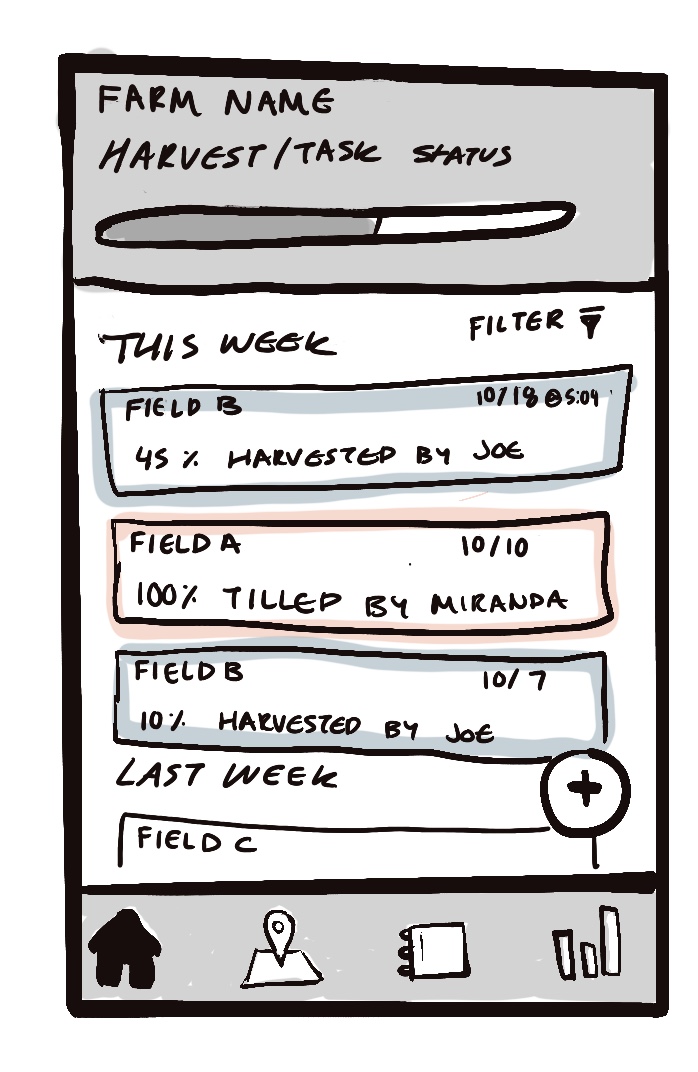 FARM NAME
HARVEST/TASK STATUS
THIS WEEK
FILTER
FIELD B 10/18 @ 5:04
45 % HARVESTED BY JOE
FIELD A 10/10
100% TILLED BY MIRANDA
FIELD B 10/7
10% HARVESTED BY JOE
LAST WEEK
+
FIELD C